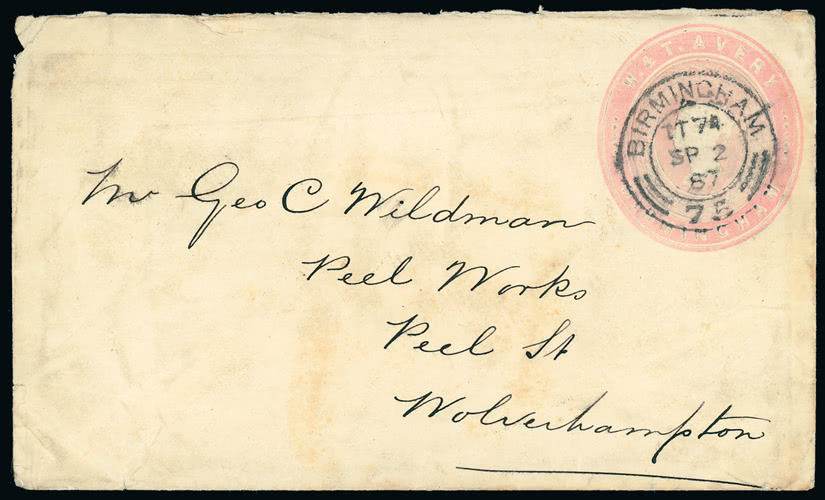 W. & T. AVERY
BIRMINGHAM
SP 2
87
75
Mr Geo C Wildman
Peel Works
Peel St
Wolverhampton